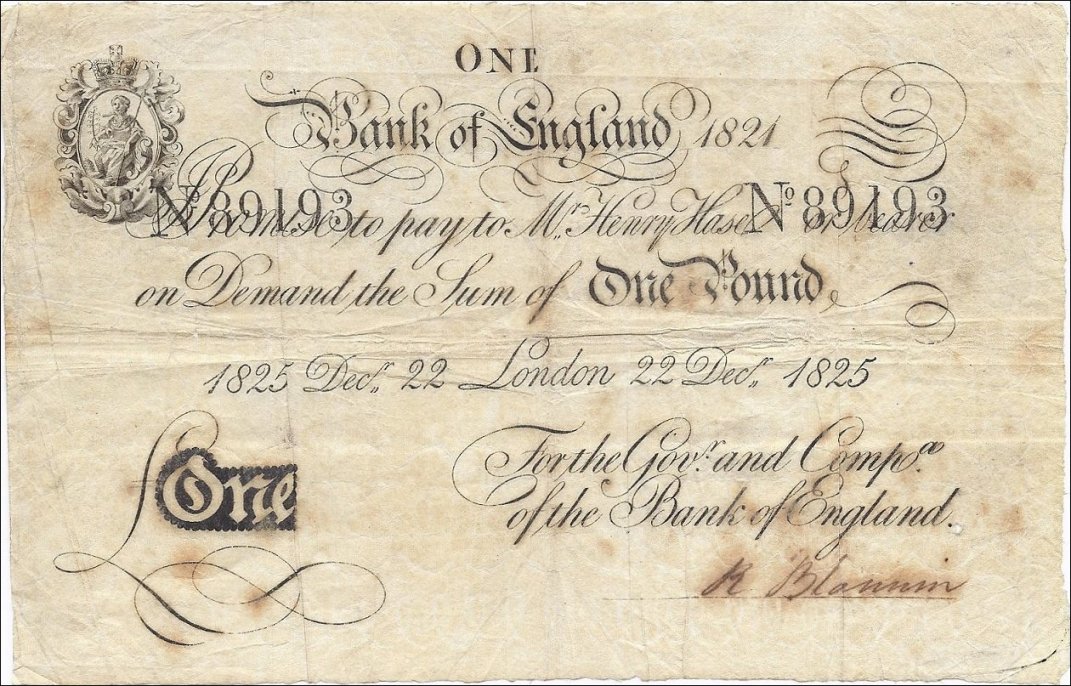 ONE
Bank of England 1821
Nº 89193 Nº 89193
I Promise to pay to Mr. Henry Hase or bearer
on Demand the Sum of One Pound
1825 Decr. 22 London 22 Decr. 1825
For the Govr. and Compa.
£One
of the Bank of England.
R